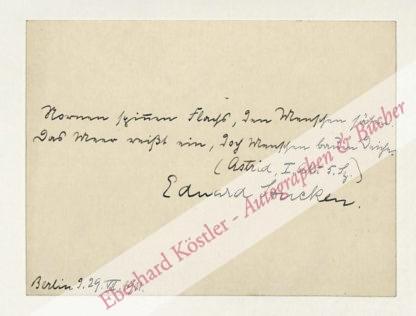 Nornen spinnen Flachs, den Menschen
Das Meer reißt ein, doch Menschen bauen Deiche.
(Astrid, I, 5. Sz.)
Eduard Stucken.
Berlin 9. 29. VII.
Eberhard Köstler - Autographen & Bücher